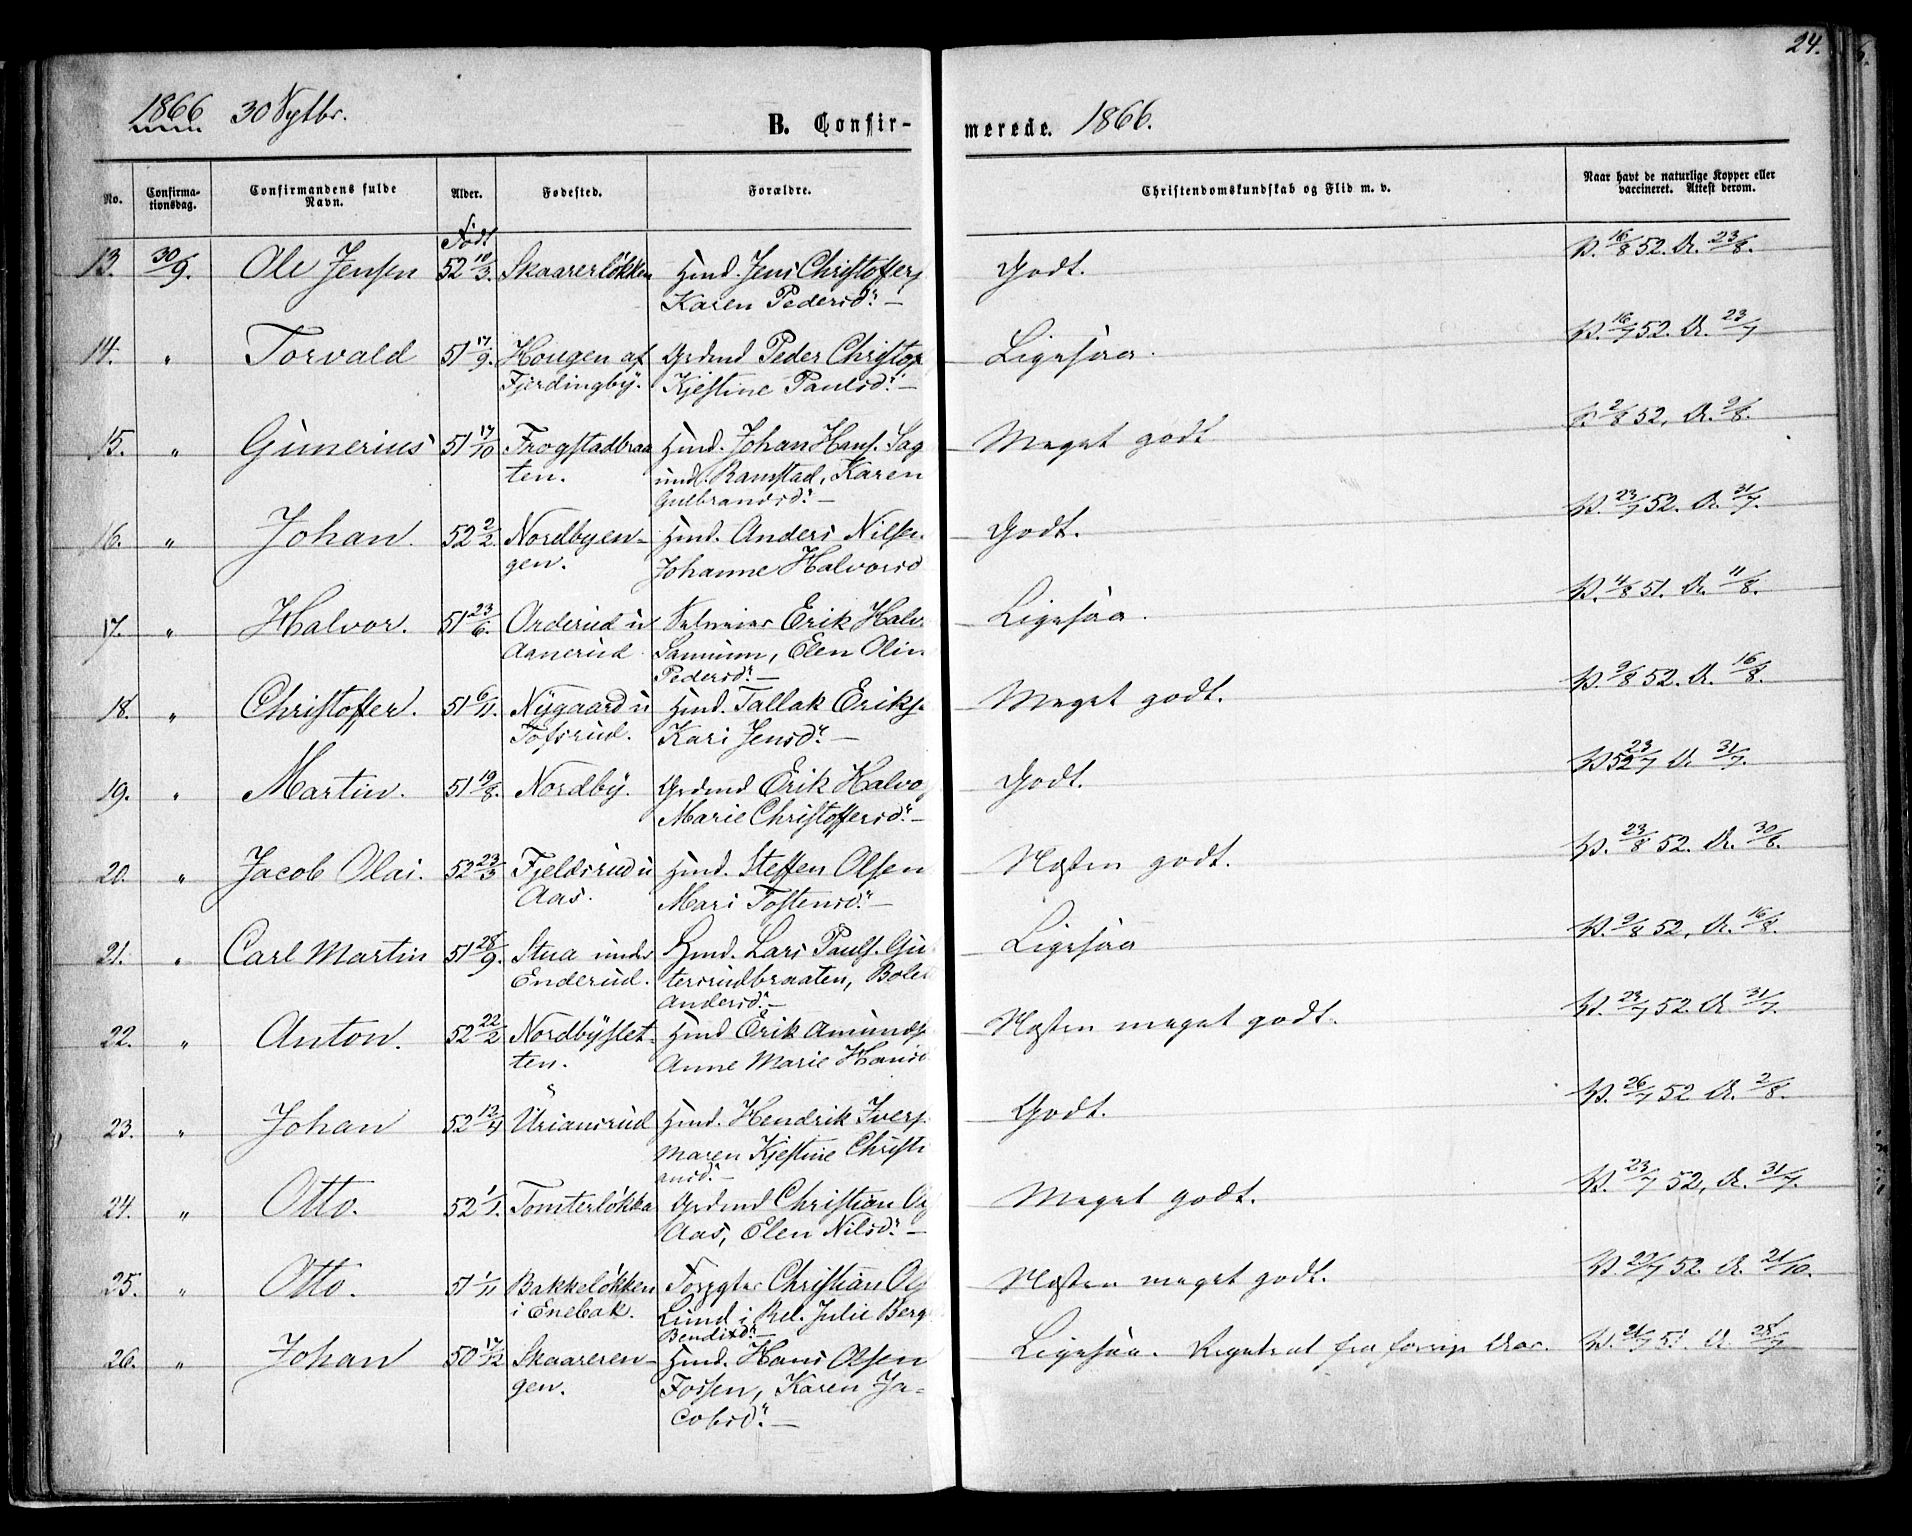 24.
1866 30 Sptbr.
B. Confir-
merede. 1866.
No. Confirma-tionsdag. Confirmandens fulde Navn. Alder. Fødested. Forældre. Christendomskundskab og Flid m. v. Naar havt de naturlige Kopper eller vaccineret. Attest derom.
Født
13. 30/9. Ole Jensen 52 10/3. Skaarerløkken Hmd. Jens Christoffers Godt. V. 16/8 52. A. 23/8.
Karen Pedersd. —
14. „ Torvald 51 17/9. Hougen af Grdmd Peder Christop Ligesaa. V. 16/7 52. A. 23/7
Fjerdingby. Kjestine Paulsd. —
15. „ Gunerius 51 17/10 Frogstadbraa Hmd. Johan Hans. Sag Meget godt 2/8 52, A. 9/8.
ten. und. Ramstad, Karen
Gulbrandsd. —
16. „ Johan. 52 2/2. Nordbyen- Hmd. Anders Nilsen Godt. V. 23/7 52. A. 31/7.
gen. Johanne Halvorsd
17. „ Halvor. 51 23/6. Orderud u Erik Halv. Ligesaa. V. 4/8 51. A. 11/8.
Aanerud , Elen Olin
Pedersd. —
18. „ Christoffer. 51 6/11. Nygaard u Hmd. Tallak Eriks. Meget godt. V. 9/8 52. A. 16/8.
Tofsrud. Kari Jensd. —
19. „ Martin. 51 19/8. Nordby. Grdmd Erik Halvo Godt. V 52 23/7 A 31/7.
Marie Christoffersd. —
20. „ Jacob Olai. 52 23/3 Fjeldsrud u Hmd. Steffen Olsen Næsten godt. V. 23/8 52. A. 30/8.
Aas. Mari Tostensd. —
21. „ Carl Martin 51 28/9. Stua under Hmd. Lars Pauls. Gu Ligesaa V. 9/8 52, A. 16/8.
Enderud. tersrudbraaten, Bolet
Andersd. —
22. „ Anton. 52 22/2 Nordbyslet- Hmd Erik Amunds Næsten meget godt. V. 23/7 52. A. 31/7.
ten. Anne Marie Hansd
23. „ Johan 52 12/4 Uriansrud Hmd. Hendrik Ivers. Godt. V. 26/7 52 A. 2/8.
Maren Kjestine Christi
ansd. —
24. „ Otto. 52 1/1. Tomterløkka Grdmd Christian Ol Meget godt. V. 23/7 52, A. 31/7.
Aas, Elen Nilsd. —
25. „ Otto. 51 1/11 Bakkeløkken Forpgter Christian Ols Næsten meget godt. V. 22/7 52. A. 21/10.
i Enebak. Lund i Rel. Julie Berg
Bendixd. —
26. „ Johan 50 17/12 Skaareren- Hmd. Hans Olsen Ligesaa. fra forrige Aar. V. 21/7 51. A. 28/7
gen. Fossen, Karen Ja-
cobsd. —